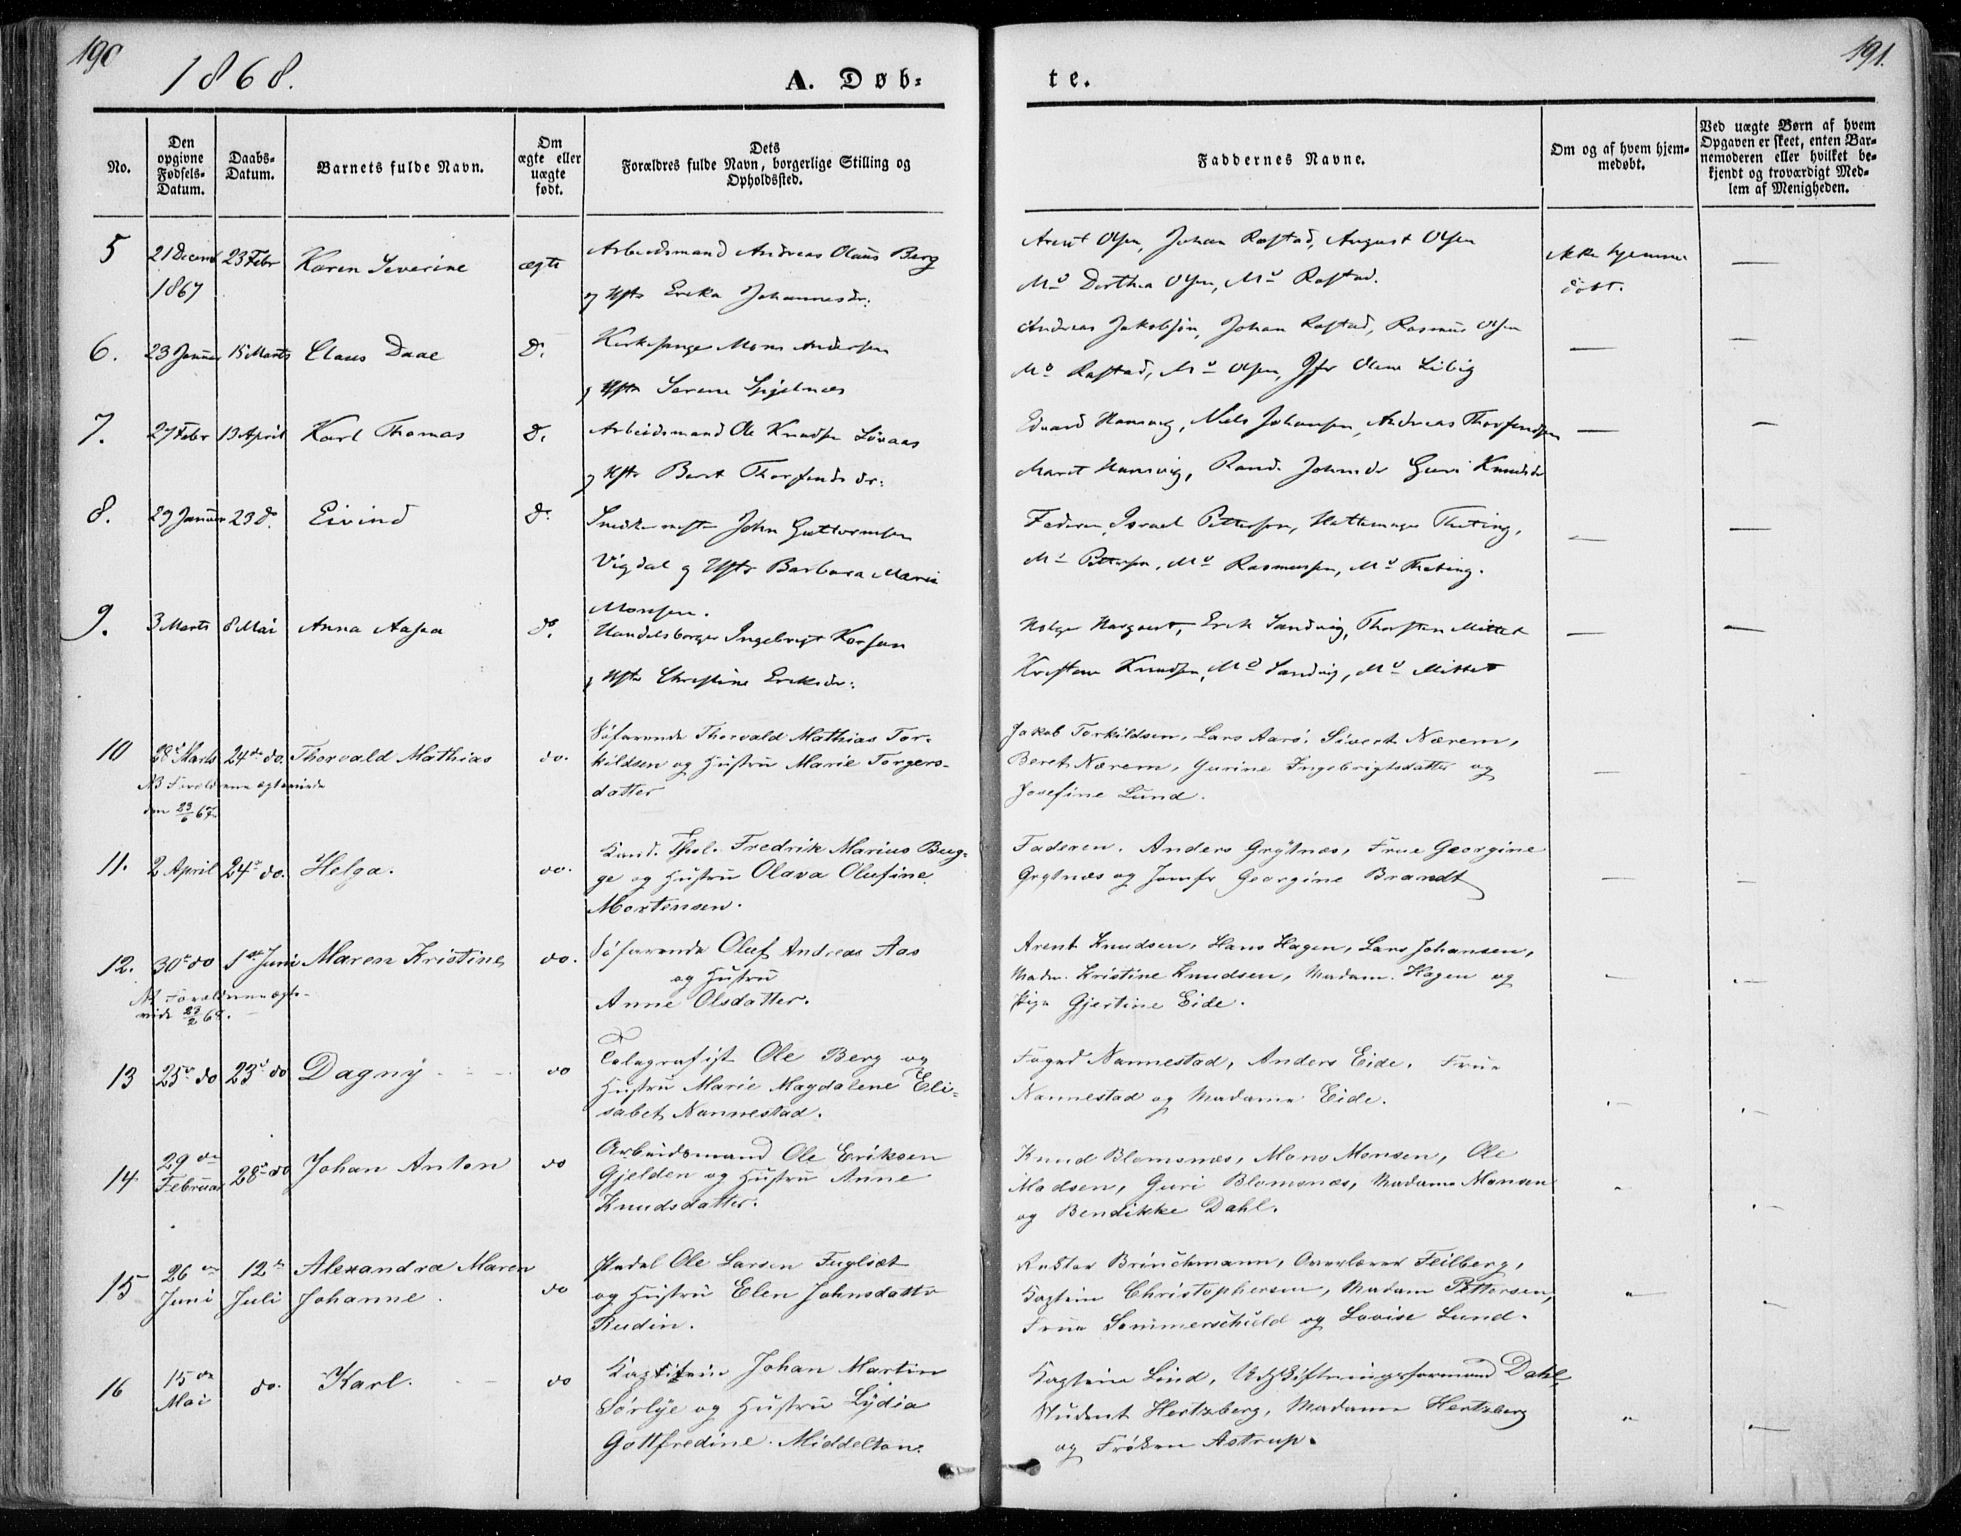 190
1868.
A. Døb-
te.
191.
No.
Den opgivne Fødsels-Datum.
Daabs-Datum.
Barnets fulde Navn.
Om ægte eller uægte født.
Dets Forældres fulde Navn, borgerlige Stilling og Opholdssted.
Faddernes Navne.
Om og af hvem hjem-medøbt.
Ved uægte Børn af hvem Opgaven er skeet, enten Bar-nemoderen eller hvilket be-kjendt og troværdigt Med-lem af Menigheden.
5 21 Decemb 23 Febr Karen Severine ægte Arbeidsmand Andreas Olaus Berg
1867 og Hstr Erika Johannesdr:
Arent Olsen, Johan Rasstad, August Olsen ikke hjemme
Md Dorthea Olsen, Md Rasstad. døbt. —
6. 23 Januar 15 Marts Claus Daae Do. Kirkesanger Mons Andersen
og Hstr Serene
Andreas Jakobsøn, Johan Rasstad, Rasmus Olsen — —
Md Rasstad, Md Olsen, Jfr Olene
7. 27 Febr 13 April Karl Thomas Do. Arbeidsmand Ole Knudsen Løvaas
og Hstr Berit
Edvard Hamsvig, Niels Johansen, Andreas — —
Marit Hamsvig, Johnsdr Guri Knudsdr
8. 29 Januar 23 do. Eivind Do. Snedkermester John Guttormsen
Vigdal og Hstr Barbara Maria
Monsen.
Faderen, Israel Pettersen, Hattemager Theting, — —
Md Pettersen, Md Rasmussen, Md Theting.
9. 3 Marts 8 Mai Anna Aasea do. Handelsborger Ingebrigt Korsen
og Hstr Christine Eriksdr:
Erik Sandvig, Thorsten Mittet — —
Knudsen, Md Sandvig, Md Mittet
10 28d Marts 24de do. Thorvald Mathias do. Søfarende Thorvald Mathias Tor-
kildsen og Hustru Marie Torgers-
datter
NB Forældrene ægteviede
den 23/6 67.
Jakob Torkildsen, Lars Aarø, Sivert Nærem,
Beret Nærem, Gurine Ingebrigtsdatter og — —
Josefine Lund.
11. 2 April 24d do. Helga. do. Kand. Theol. Fredrik Marius Bug-
ge og Hustru Olava Olufine
Mortensen.
Faderen. Anders Grytnæs, Frue Georgine
Grytnæs og Jomfr Georgine Brandt — —
12. 30d do 1ste Juni Maren Kristine do. Søfarende Oluf Andreas Aas
og Hustru
Anne Olsdatter.
NB Forældrene ægte-
viede 23/2 68.
Arent Knudsen, Hans Hagen, Lars Johansen,
Madm. Kristine Knudsen, Madam. Hagen og — —
Pige Gjertine Eide.
13 25d do 23d do Dagny do Telegrafist Ole Berg og
Hustru Marie Magdalene Eli-
sabet Nannestad.
Foged Nannestad, Anders Eide. Frue
Nannestad og Madame Eide. — —
14 29de Februar 28d do Johan Anton do Arbeidsmand Ole Eriksen
Gjelden og Hustru Anne
Knudsdatter.
Knud Blomsnæs, Mons Monsen, Ole
Madsen, Guri Blomsnæs, Madame Monsen
og Bendikke Dahl.
15 26de Juni 12te Juli Alexandra Maren Johanne. do Pedel Ole Larsen Fuglset
og Hustru Elen Johnsdatter
Rudin.
Rektor Brinchmann, Overlærer Feilberg,
Kaptein Christophersen, Madam Pettersen,
Frue Sommerschield og Lovise Lund.
16 15de Mai do. Karl. do Kaptein Johan Martin
Sørlye og Hustru Lydia
Gottfredine Middelton.
Kaptein Lind, Udskiftningsformand Dahl,
Student Hertzberg, Madame Hertzberg
og Frøken Astrup.